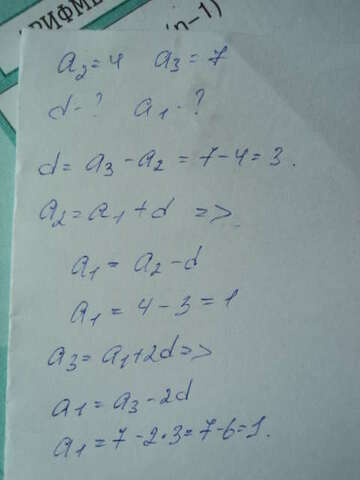 АРИФМЕ
(n-1)
a₂=4 a₃=7
d-? a₁-?
d= a₃ - a₂ = 7-4=3.
a₂=a₁+d =>
a₁ = a₂ -d
a₁ = 4 - 3 = 1
a₃= a₁+2d=>
a₁ = a₃ - 2d
a₁ = 7 - 2·3= 7-6=1.